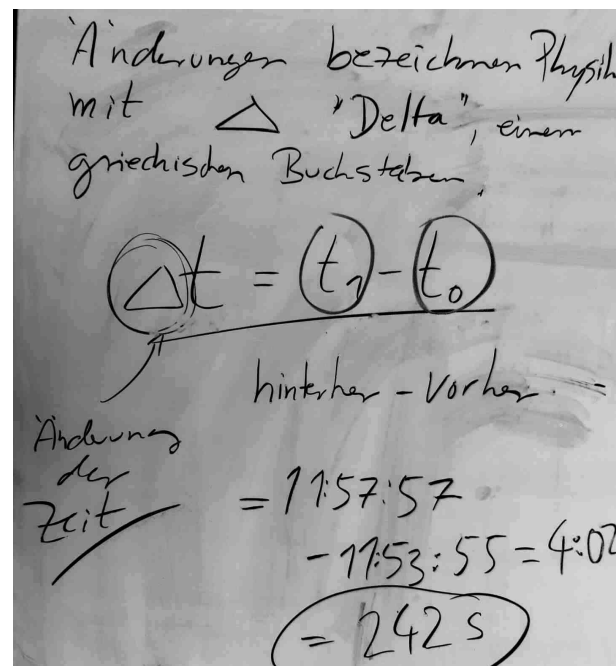 Änderungen bezeichnen Physik
mit △ "Delta", einem
griechischen Buchstaben.
△t = t₁ - t₀
hinterher - vorher. =
Änderung
der
Zeit
= 11:57:57
- 11:53:55 = 4:02
= 242 s